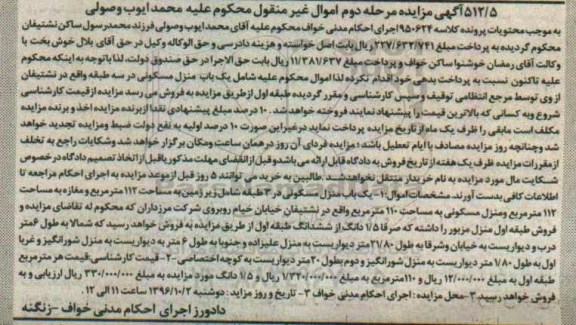 ۵۱۲/۵آگهی مزایده مرحله دوم اموال غیر منقول محکوم علیه محمد ایوب وصولی
به موجب محتویات پرونده کلاسه ۹۵۰۶۲۴ اجرای احکام مدنی خواف محکوم علیه آقای محمد ایوب وصولی فرزند محمدرسول ساکن نشتیفان
محکوم گردیده به پرداخت مبلغ ۲۲۷/۶۳۲/۷۴۱ ریال بابت اصل خواسته و هزینه دادرسی و حق الوکاله وکیل در حق آقای بلال خوش بخت با
وکالت آقای رمضان خوشنوا ساکن خواف و پرداخت مبلغ ۱۱/۳۸۱/۶۳۷ ریال بابت حق الاجرا در حق صندوق دولت، لذا باتوجه به اینکه محکوم
علیه تاکنون نسبت به پرداخت بدهی خود اقدام نکرده لذا اموال محکوم علیه شامل یک باب منزل مسکونی در سه طبقه واقع در نشتیفان
از وی توسط مرجع انتظامی توقیف وسپس کارشناسی و مقرر گردیده طبقه اول از طریق مزایده به فروش می رسد مزایده از قیمت کارشناسی
شروع وبه کسانی که بالاترین قیمت را پیشنهاد نمایند فروخته خواهد شد. ۱۰ درصد مبلغ پیشنهادی نقدا از برنده مزایده اخذ و برنده مزایده
مکلف است مابقی را ظرف یک ماه از تاریخ مزایده پرداخت نماید در غیر این صورت ۱۰ درصد اولیه به نفع دولت ضبط ومزایده تجدید خواهد
شد وچنانچه روز مزایده مصادف با ایام تعطیل باشد؛ مزایده فردای آن روز در همان ساعت ومکان برگزار خواهد شد وشکایات راجع به تخلف
از مقررات مزایده ظرف یک هفته از تاریخ فروش به دادگاه قابل ارائه می باشد و قبل از انقضای مهلت مذکور یا قبل از اتخاذ تصمیم دادگاه درخصوص
شکایت مال مورد مزایده به نام خریدار منتقل نخواهد شد. طالبین به خرید می توانند ۵ روز قبل از موعد مزایده به اجرای احکام مراجعه تا
اطلاعات کافی بدست آورند. مشخصات اموال: ۱- یک باب منزل مسکونی در ۳ طبقه شامل زیر زمین به مساحت ۱۱۲ مترمربع و مغازه به مساحت
۱۱۲ مترمربع ومنزل مسکونی به مساحت ۱۱۰ مترمربع واقع در نشتیفان خیابان خیام روبروی شرکت مرزداران که محکوم له تقاضای مزایده و
فروش طبقه اول منزل مزبور را داشته که صرفا ۱/۵ دانگ از ششدانگ طبقه اول از طریق مزایده به فروش خواهد رسید که شمالا به طول ۶ متر
درب و دیواریست به خیابان وشرقا به طول ۲۱/۸۰ متر دیواریست به منزل علیزاده و جنوبا به طول ۶ متر به دیواریست به منزل شورانگیز و غربا
اول به طول ۱/۸۰ متر دیواریست به منزل شورانگیز و دوم بطول ۲۰متر دیواریست به کوچه اختصاصی -۲- قیمت کارشناسی: قیمت هر مترمربع
طبقه اول به مبلغ ۱۲/۰۰۰/۰۰۰ ریال و ۱۱۰مترمربع به مبلغ ۱/۳۲۰/۰۰۰/۰۰۰ ریال و ۱/۵ دانگ مورد مزایده به مبلغ ۳۳۰/۰۰۰/۰۰۰ ریال ارزیابی و به
فروش خواهد رسید ۳- محل مزایده: اجرای احکام مدنی خواف ۴- تاریخ و روز مزاید: دوشنبه ۱۳۹۶/۱۰/۲ ساعت ۱۱ الی ۱۲.
دادورز اجرای احکام مدنی خواف -زنگنه